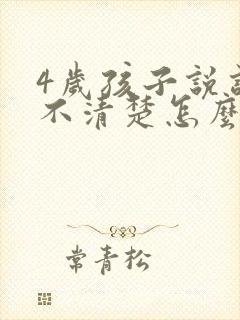 4歲孩子說
不清楚怎麼
常青松